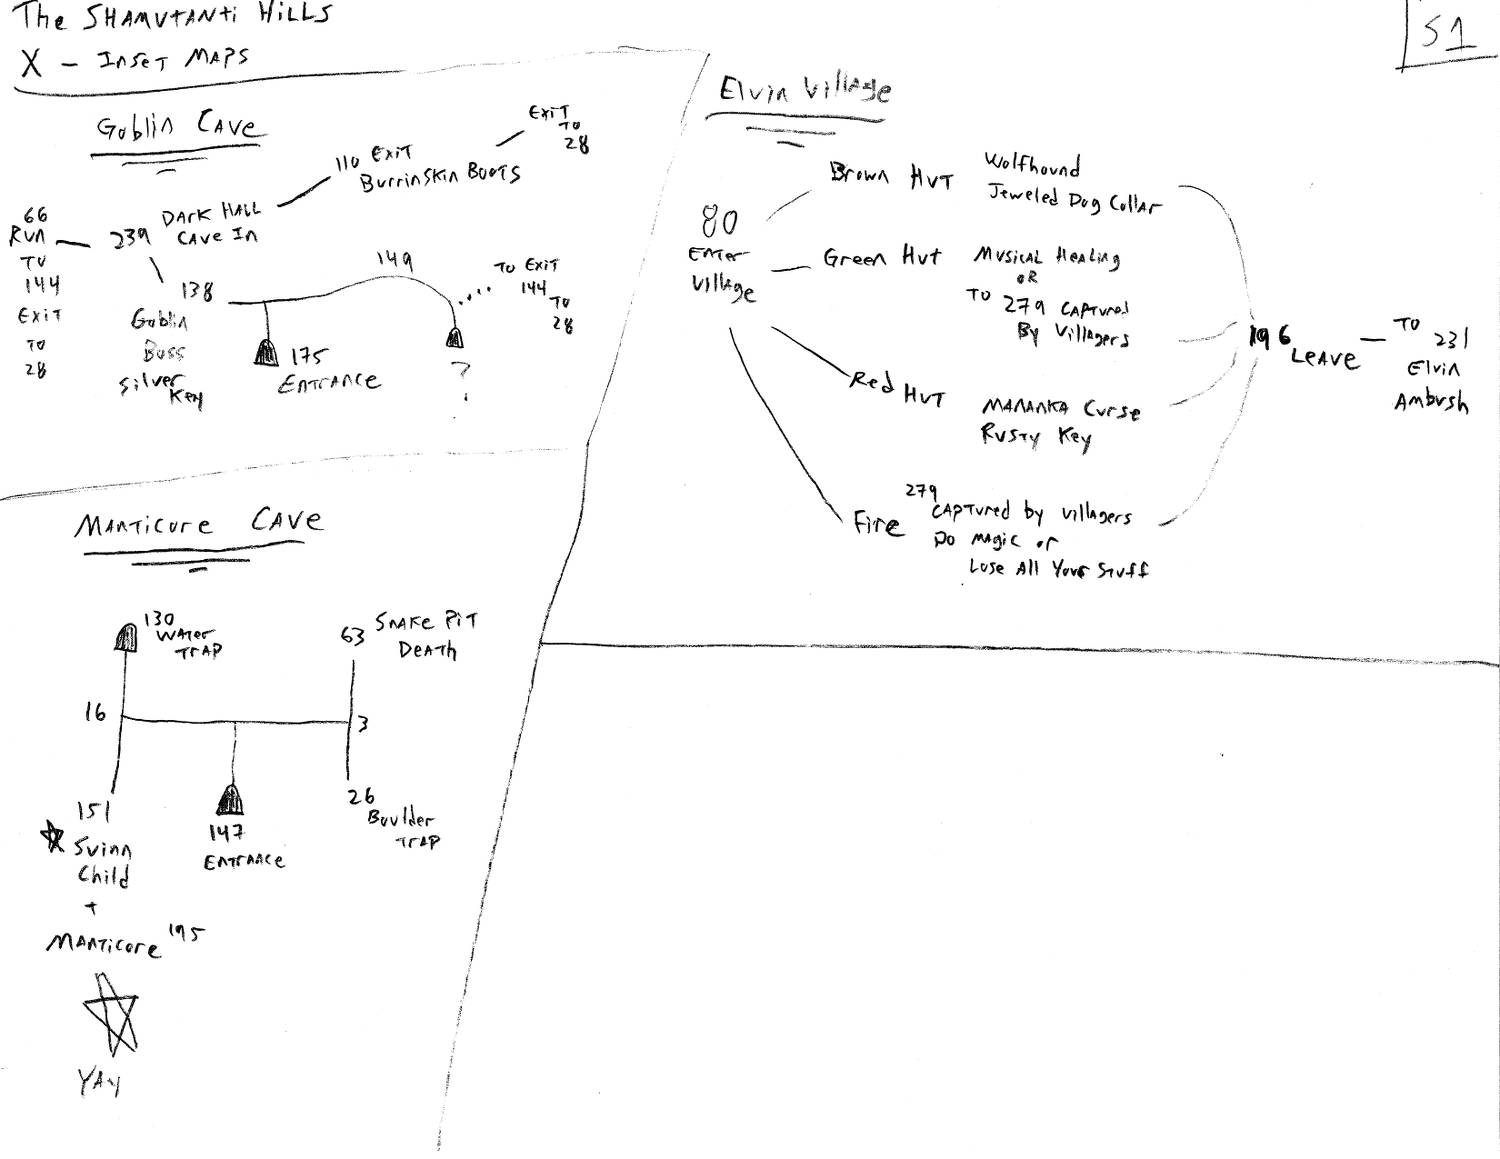 The SHAMUTANTI HILLS
X - INSET MAPS
S1
Goblin CAVE
EXIT
TO
28
110 EXIT
BURRINSKIN BOOTS
66
RUN
TO
144
EXIT
TO
28
239
DARK HALL
CAVE IN
138
Goblin
Boss
Silver
Key
149
TO EXIT
144
TO
28
175
ENTRANCE
?
Elvin Village
80
Enter
Village
Brown HUT
Wolfhound
Jeweled Dog Collar
Green Hut
MUSICAL Healing
OR
TO 279 CAPTURED
By Villagers
Red HUT
MANANKA Curse
RUSTY Key
Fire
279
CAPTURED by villagers
DO MAGIC or
Lose All Your Stuff
196 LEAVE
TO 231
Elvin
Ambush
MANTICORE CAVE
130
WATER
TRAP
63 SNAKE PIT
DEATH
16
3
151
Svinn
Child
+
MANTICORE 195
YAY
147
ENTRANCE
26
Boulder
TRAP